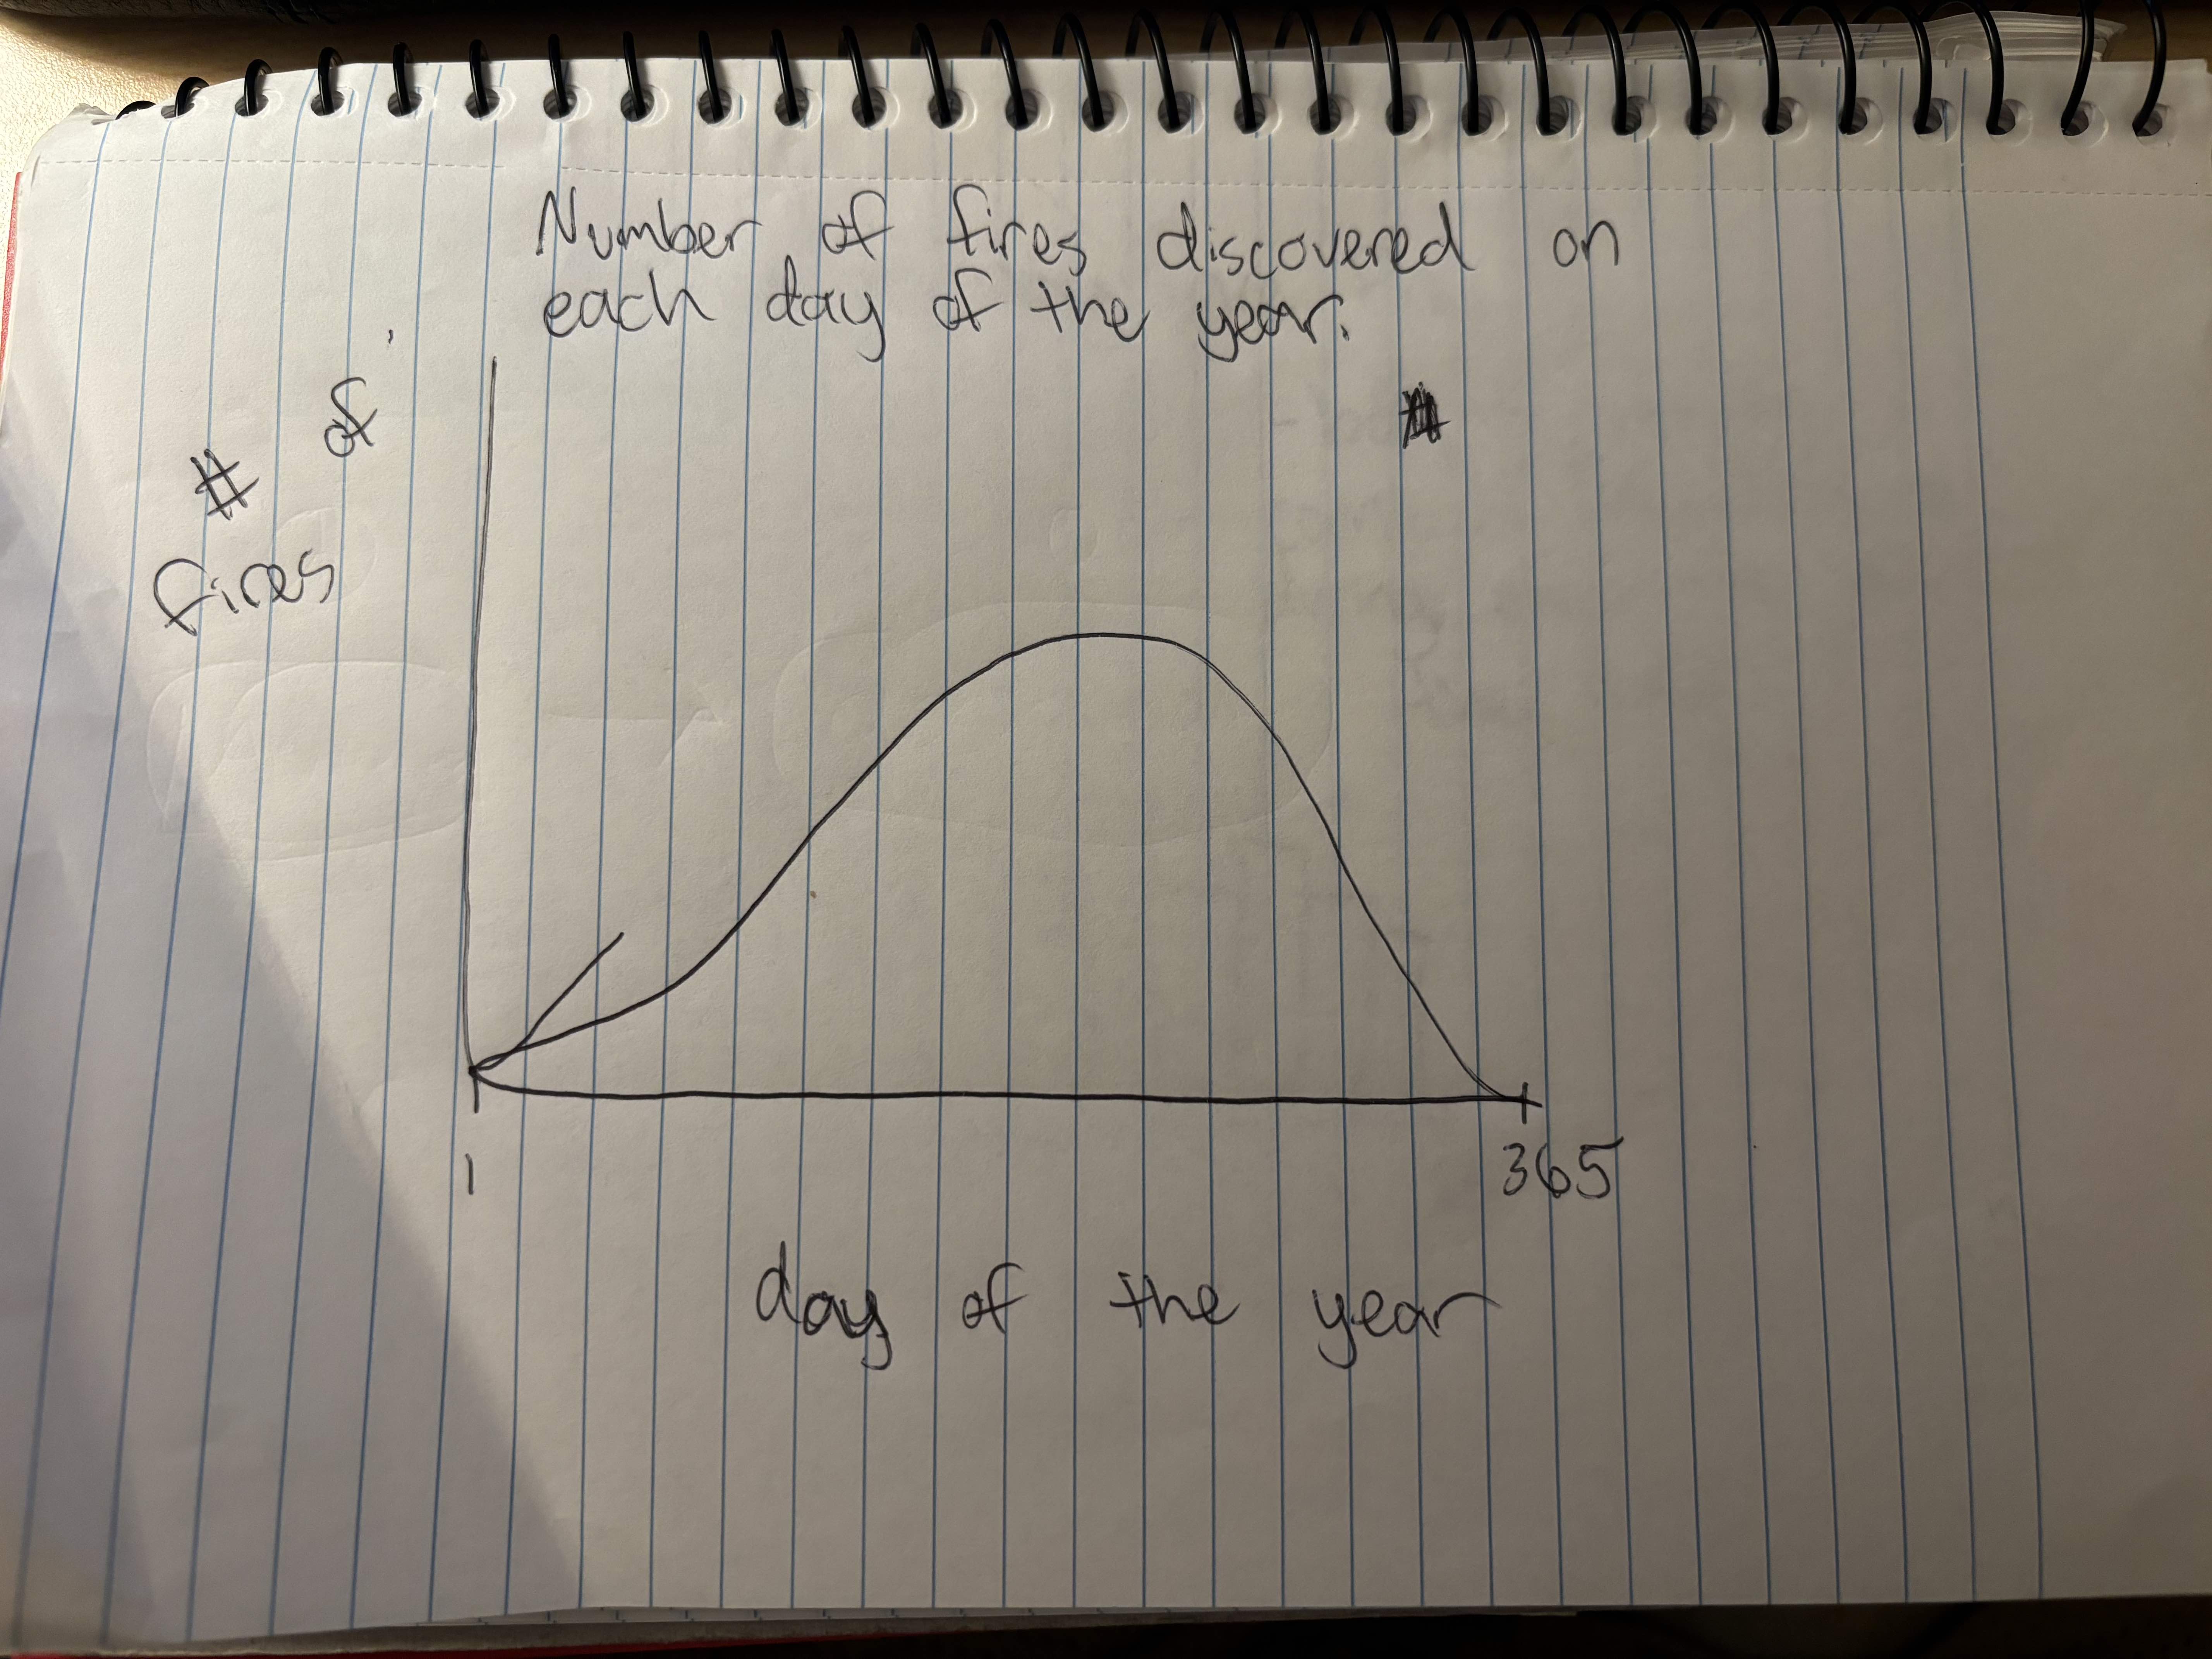 Number of fires discovered on
each day of the year.
# of
fires
1
365
day of the year